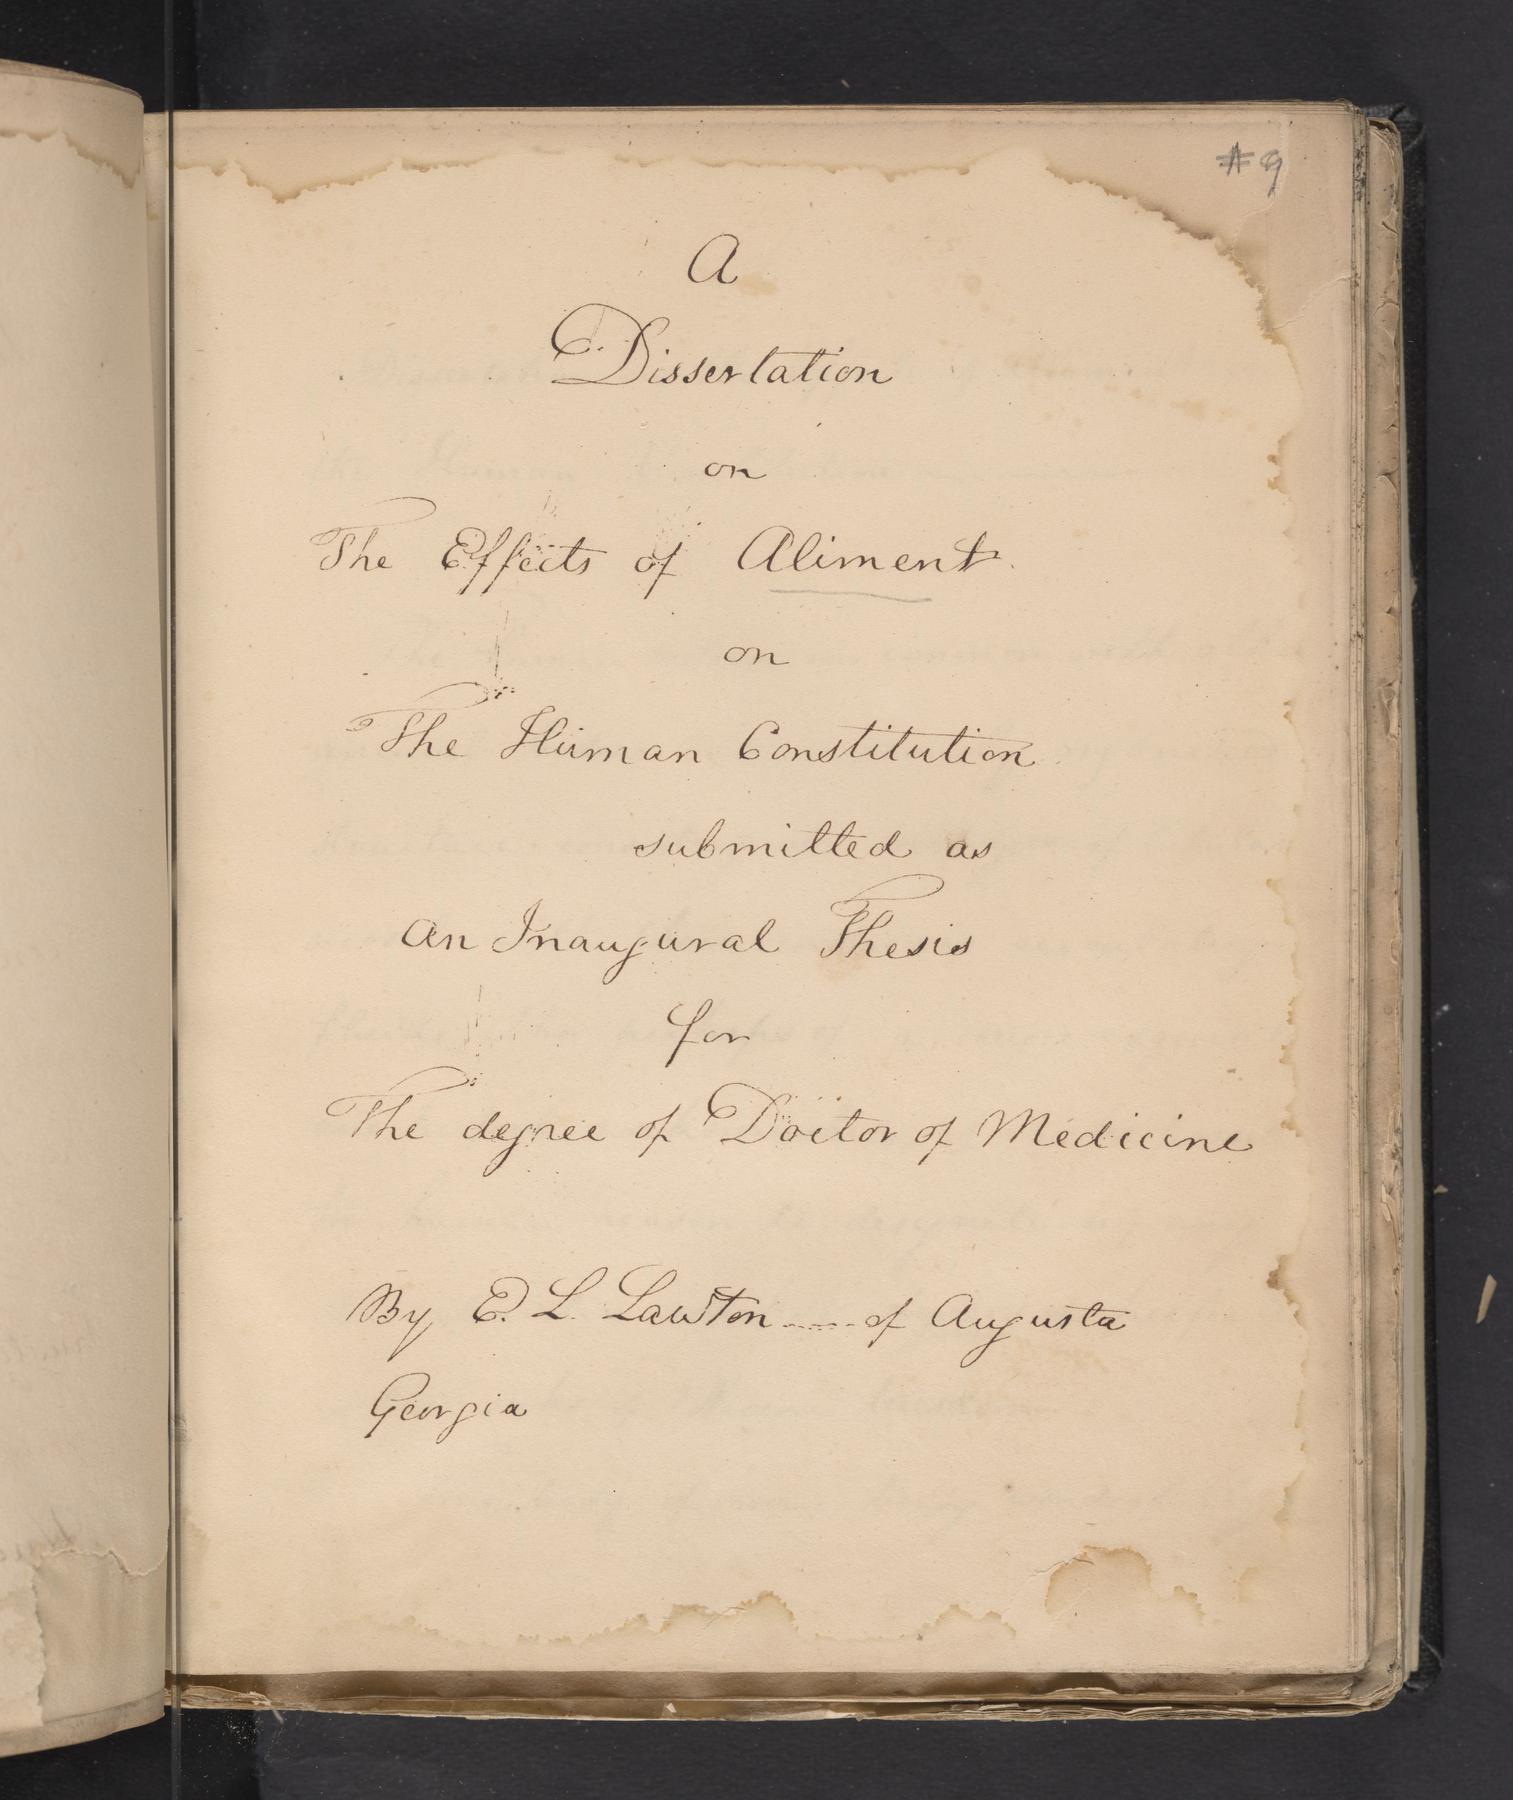 #9
A
Dissertation
on
The Effects of Aliment.
on
The Human Constitution
submitted as
An Inaugural Thesis
for
The degree of Doctor of Medicine
By E. L. Lawton ..... of Augusta
Georgia